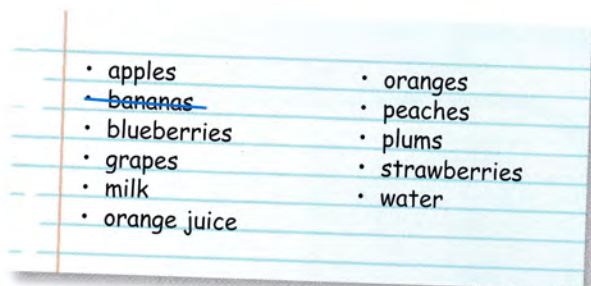 • apples
• bananas
• blueberries
• grapes
• milk
• orange juice
• oranges
• peaches
• plums
• strawberries
• water